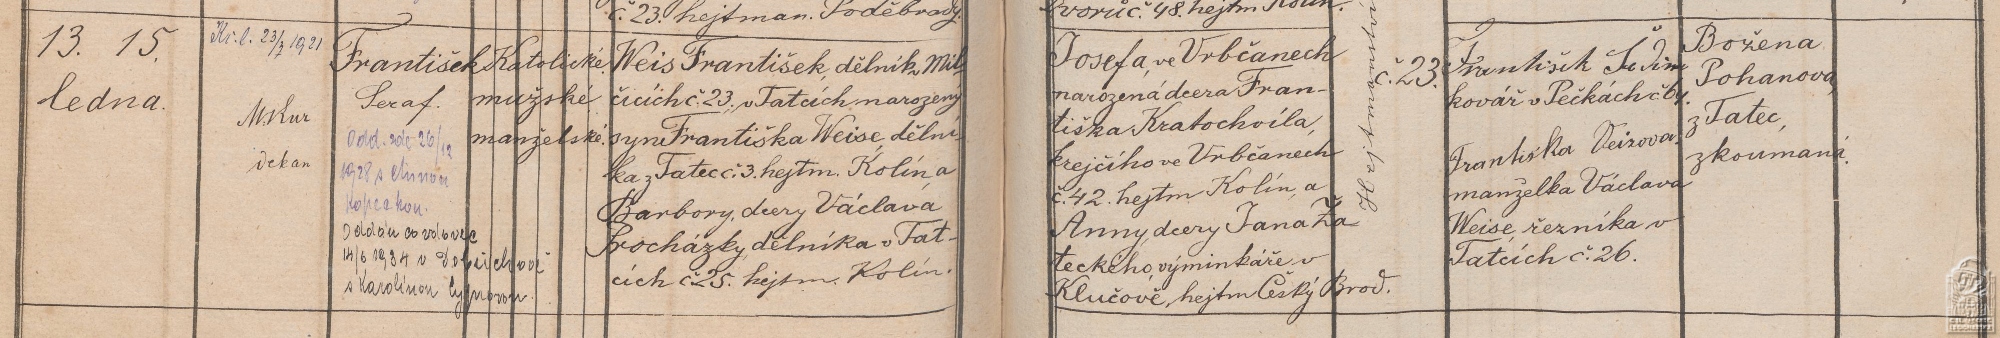 č. 23. hejtman. Poděbrady.
13. 15.
ledna.
Kř. l. 23/7 1921
M. Kur
děkan
František
Seraf.
Odd. zde 26/12
1928 s Annou
Oddán co vdovec
14/6 1934 v
s Karolinou
Katolické
mužské
manželské.
Weis František, dělník v Mil-
čicích č. 23., v Tatcích narozený
syn Františka Weise, dělní-
ka z Tatec č. 3. hejtm. Kolín, a
Barbory, dcery Václava
Procházky, dělníka v Tat-
cích č. 25. hejtm. Kolín.
Dvorů č. 48. hejtm. Kolín.
Josefa, ve Vrbčanech
narozená dcera Fran-
tiška Kratochvíla,
krejčího ve Vrbčanech
č. 42. hejtm Kolín, a
Anny, dcery Jana Ža-
teckého, výminkáře v
Klučově, hejtm Český Brod.
č. 23.
František
kovář v Pečkách č 64.
Františka Veisova
manželka Václava
Weise, řezníka v
Tatcích č. 26.
Božena
Pohanova,
z Tatec,
zkoumaná.